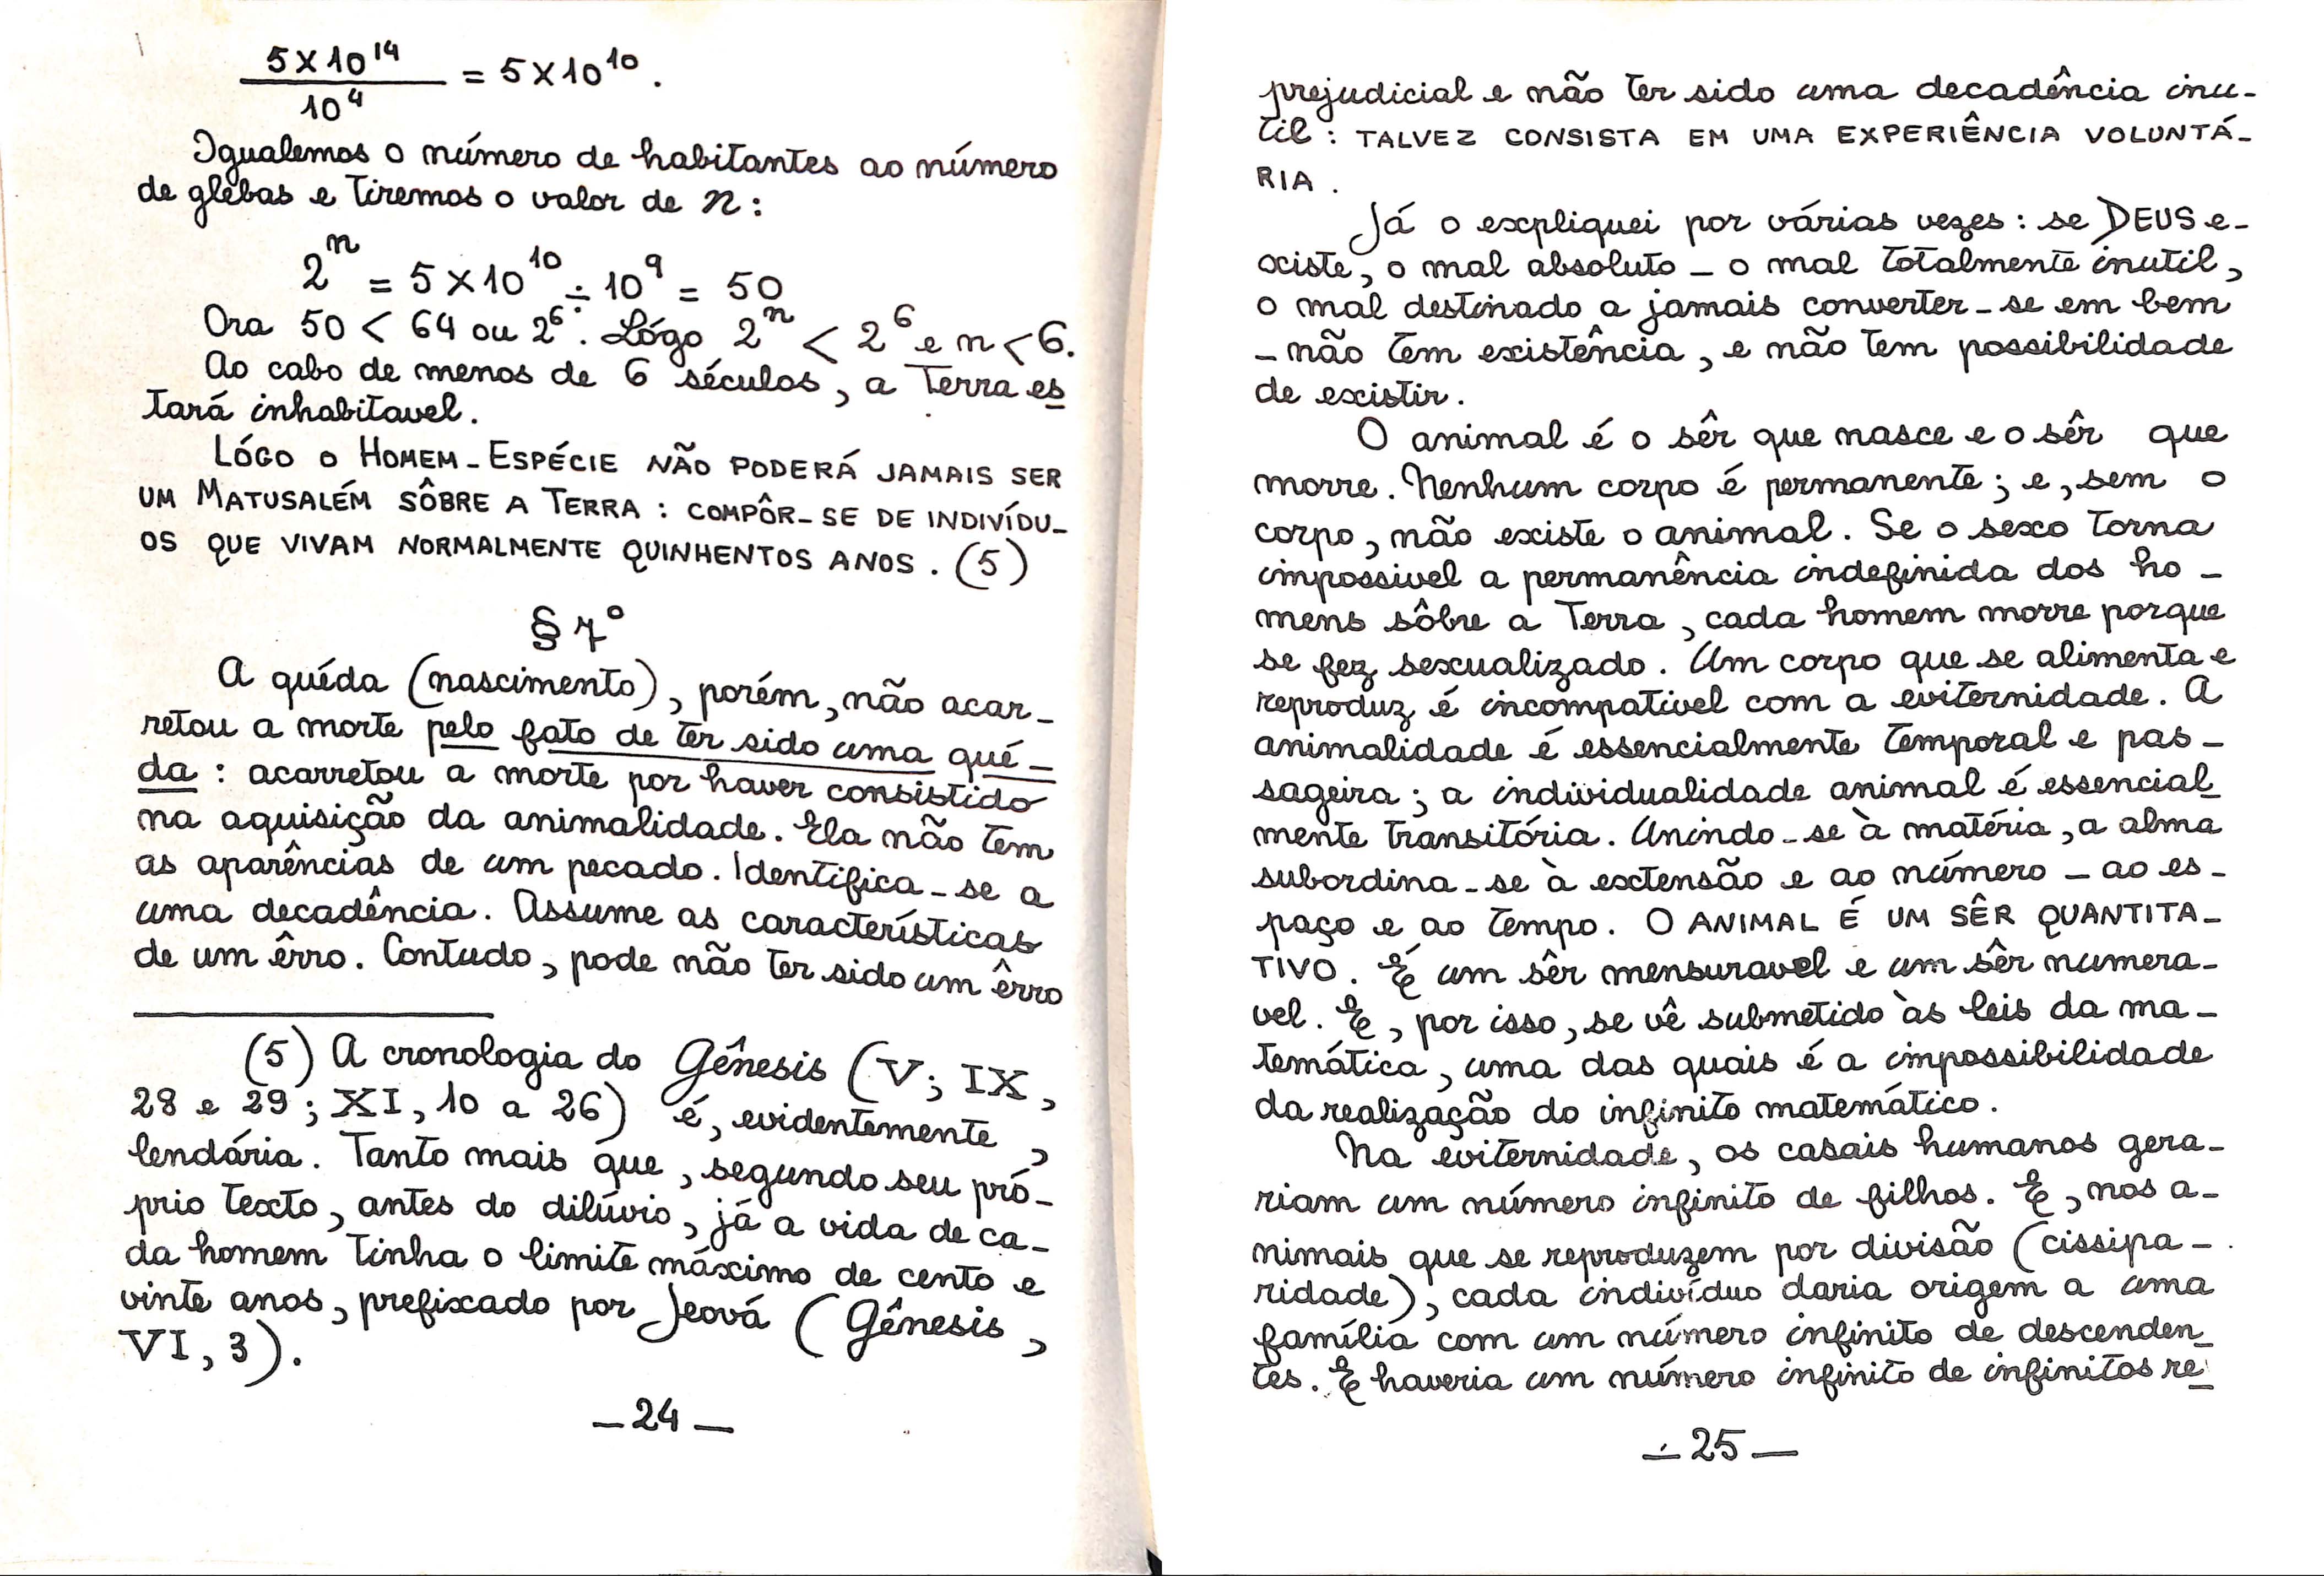 5 X 10^14
_______ = 5 X 10^10 .
10^4
Igualemos o número de habitantes ao número
de glébas e tiremos o valor de n :
2^n = 5 X 10^10 ÷ 10^9 = 50
Ora 50 < 64 ou 2^6. Lógo 2^n < 2^6 e n < 6.
Ao cabo de menos de 6 séculos, a Terra es
tará inhabitavel.
LÓGO O HOMEM-ESPÉCIE NÃO PODERÁ JAMAIS SER
UM MATUSALÉM SÔBRE A TERRA : COMPÔR-SE DE INDIVÍDU-
OS QUE VIVAM NORMALMENTE QUINHENTOS ANOS. (5)
§ 7°
A quéda (nascimento), porém, não acar-
retou a morte pelo fato de ter sido uma qué-
da : acarretou a morte por haver consistido
na aquisição da animalidade. Ela não tem
as aparências de um pecado. Identifica-se a
uma decadência. Assume as características
de um êrro. Contudo, pode não ter sido um êrro
(5) A cronologia do Gênesis (V; IX,
28 e 29; XI, 10 a 26) é, evidentemente,
lendária. Tanto mais que, segundo seu pró-
prio texto, antes do dilúvio, já a vida de ca-
da homem tinha o limite máximo de cento e
vinte anos, prefixado por Jeová (Gênesis,
VI, 3).
— 24 —
prejudicial e não ter sido uma decadência inu-
til : TALVEZ CONSISTA EM UMA EXPERIÊNCIA VOLUNTÁ-
RIA.
Já o expliquei por várias vezes : se DEUS e-
xiste, o mal absoluto - o mal totalmente inutil,
o mal destinado a jamais converter-se em bem
- não tem existência, e não tem possibilidade
de existir.
O animal é o sêr que nasce e o sêr que
morre. Nenhum corpo é permanente; e, sem o
corpo, não existe o animal. Se o sexo torna
impossivel a permanência indefinida dos ho-
mens sôbre a Terra, cada homem morre porque
se fez sexualizado. Um corpo que se alimenta e
reproduz é incompativel com a eviternidade. A
animalidade é essencialmente temporal e pas-
sageira; a individualidade animal é essencial
mente transitória. Unindo-se à matéria, a alma
subordina-se à extensão e ao número - ao es-
paço e ao tempo. O ANIMAL É UM SÊR QUANTITA-
TIVO. É um sêr mensuravel e um sêr numera-
vel. E, por isso, se vê submetido às leis da ma-
temática, uma das quais é a impossibilidade
da realização do infinito matemático.
Na eviternidade, os casais humanos gera-
riam um número infinito de filhos. E, nos a-
nimais que se reproduzem por divisão (cissipa-
ridade), cada indivíduo daria origem a uma
família com um número infinito de descenden
tes. E haveria um número infinito de infinitos re
— 25 —